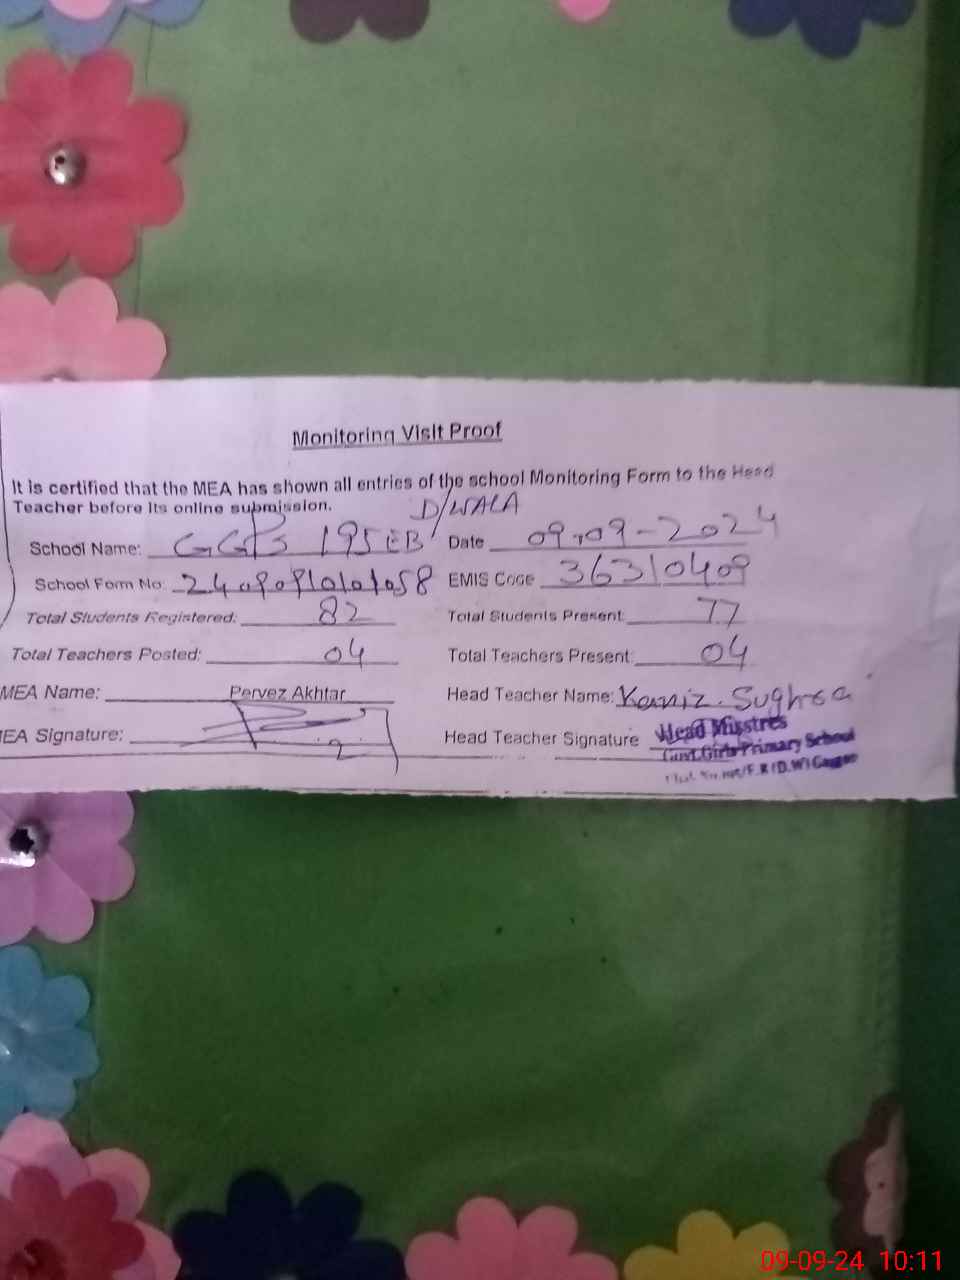 Monitoring Visit Proof
It is certified that the MEA has shown all entries of the school Monitoring Form to the Head
Teacher before its online submission.
D/WALA
School Name: GGPS 195 EB Date 09-09-2024
School Form No: EMIS Code 36310409
Total Students Registered: 82 Total Students Present: 77
Total Teachers Posted: 04 Total Teachers Present: 04
MEA Name: Pervez Akhtar Head Teacher Name: Kaniz Sughra
EA Signature: Head Teacher Signature Head Misstres
Govt. Girls Primary School
(D.W) Gaggoo
09-09-24 10:11